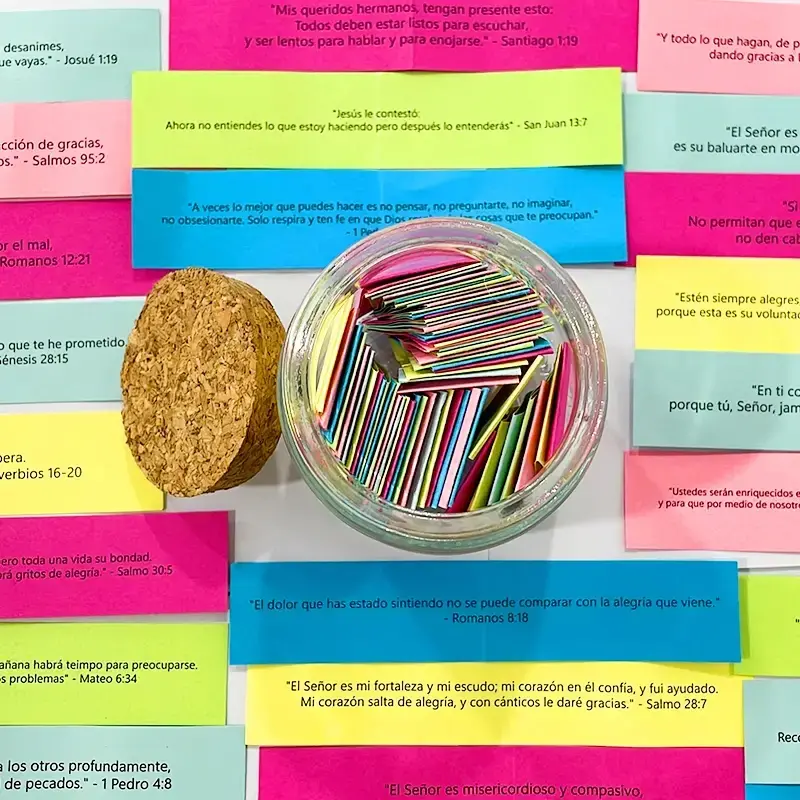 desanimes,
ue vayas." - Josué 1:19
cción de gracias,
os." - Salmos 95:2
or el mal,
Romanos 12:21
o que te he prometido.
Génesis 28:15
pera.
verbios 16-20
pero toda una vida su bondad.
rá gritos de alegría." - Salmo 30:5
añana habrá teimpo para preocuparse.
os problemas" - Mateo 6:34
a los otros profundamente,
de pecados." - 1 Pedro 4:8
"Mis queridos hermanos, tengan presente esto:
Todos deben estar listos para escuchar,
y ser lentos para hablar y para enojarse." - Santiago 1:19
"Jesús le contestó:
Ahora no entiendes lo que estoy haciendo pero después lo entenderás" - San Juan 13:7
"A veces lo mejor que puedes hacer es no pensar, no preguntarte, no imaginar,
no obsesionarte. Solo respira y ten fe en que Dios cosas que te preocupan."
- 1 Ped
"El dolor que has estado sintiendo no se puede comparar con la alegría que viene."
- Romanos 8:18
"El Señor es mi fortaleza y mi escudo; mi corazón en él confía, y fui ayudado.
Mi corazón salta de alegría, y con cánticos le daré gracias." - Salmo 28:7
"El Señor es misericordioso y compasivo,
"Y todo lo que hagan, de p
dando gracias a
"El Señor es
es su baluarte en mo
"Si
No permitan que e
no den cab
"Estén siempre alegres,
porque esta es su volunta
"En ti co
porque tú, Señor, jam
"Ustedes serán enriquecidos e
y para que por medio de nosotr
Rec